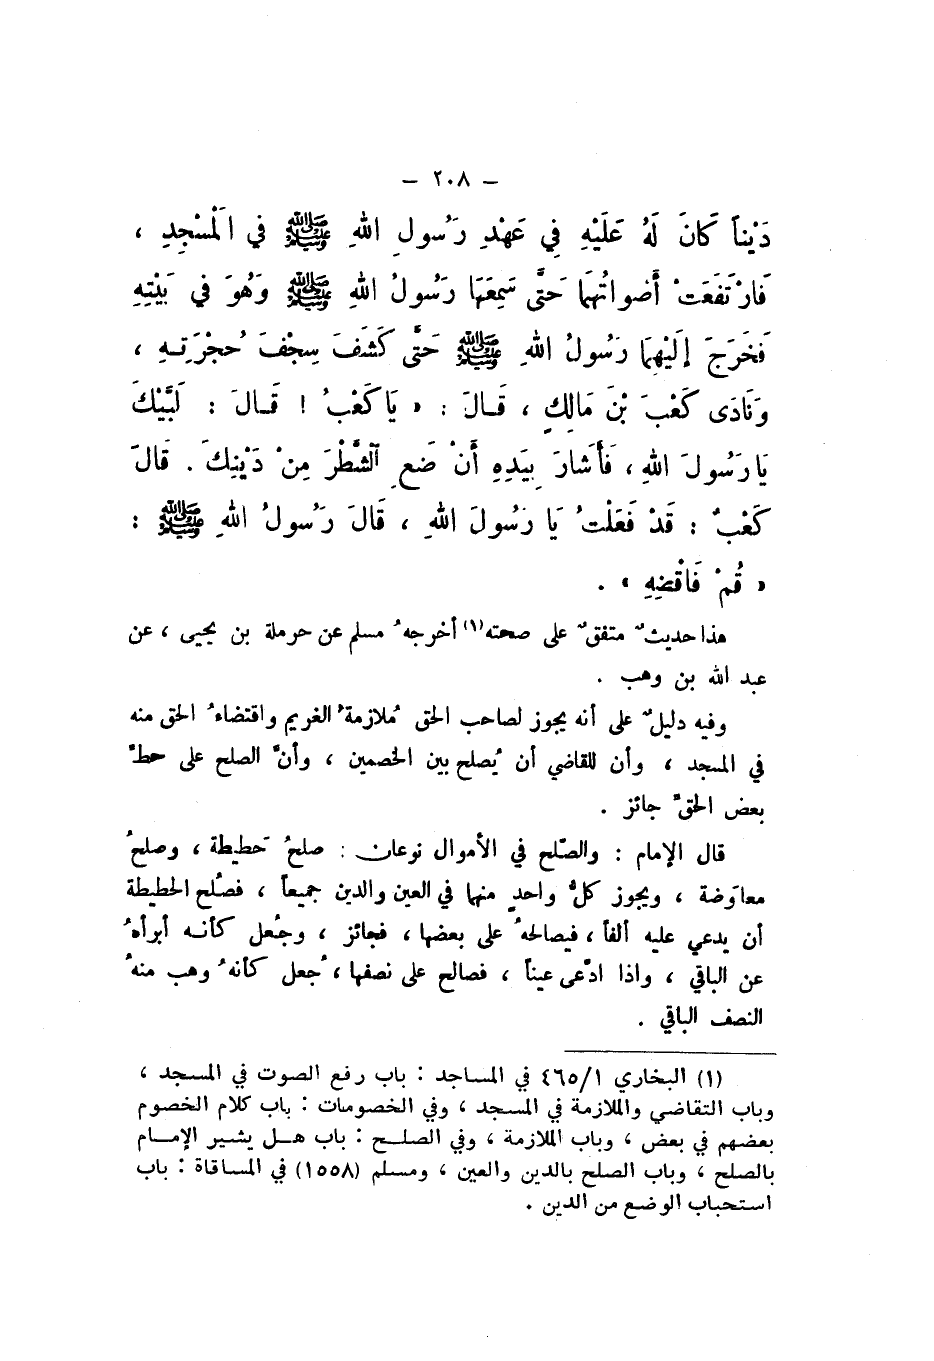 – ٢٠٨ –
دَيْناً كَانَ لَهُ عَلَيْهِ فِي عَهْدِ رَسُولِ اللهِ ﷺ في اَلْمَسْجِدِ ،
فَارْتَفَعَتْ أَصْواتُهُمَا حَتَّى سَمِعَهَا رَسُولُ اللهِ ﷺ وَهُوَ في بَيْتِهِ
فَخَرَجَ إلَيْهِمَا رَسُولُ اللهِ ﷺ حَتَّى كَشَفَ سِجْفَ حُجْرَتِهِ ،
وَنَادَى كَعْبَ بْنَ مَالِكٍ ، قَالَ : « يَا كَعْبُ ! قَالَ : لَبَّيْكَ
يَا رَسُولَ اللهِ ، فَأَشَارَ بِيَدِهِ أَنْ ضَعِ ٱلشَّطْرَ مِنْ دَيْنِكَ . قَالَ
كَعْبٌ : قَدْ فَعَلْتُ يَا رَسُولَ اللهِ ، قَالَ رَسُولُ اللهِ ﷺ :
« قُمْ فَاقْضِهِ » .
هذا حديثٌ متفقٌ على صحته(١) أخرجهُ مسلم عن حرملة بن يحيى ، عن
عبد الله بن وهب .
وفيه دليلٌ على أنه يجوز لصاحب الحق مُلازمةُ الغريم واقتضاءُ الحق منه
في المسجد ، وأن للقاضي أن يُصلح بين الخصمين ، وأنَّ الصلح على حطِّ
بعض الحقِّ جائز .
قال الإمام : والصّلح في الأموال نوعان : صلحُ حَطيطة ، وصلحُ
معاوَضة ، ويجوز كلُّ واحدٍ منها في العين والدين جميعاً ، فصُلح الحطيطة
أن يدعي عليه ألفاً ، فيصالحهُ على بعضها ، فجائز ، وجُعل كأنه أبرأهُ
عن الباقي ، واذا ادّعى عيناً ، فصالح على نصفها ، جُعل كأنهُ وهب منهُ
النصف الباقي .
(١) البخاري ٤٦٥/١ في المساجد : باب رفع الصوت في المسجد ،
وباب التقاضي والملازمة في المسجد ، وفي الخصومات : باب كلام الخصوم
بعضهم في بعض ، وباب الملازمة ، وفي الصلح : باب هل يشير الإمام
بالصلح ، وباب الصلح بالدين والعين ، ومسلم (١٥٥٨) في المساقاة : باب
استحباب الوضع من الدين .